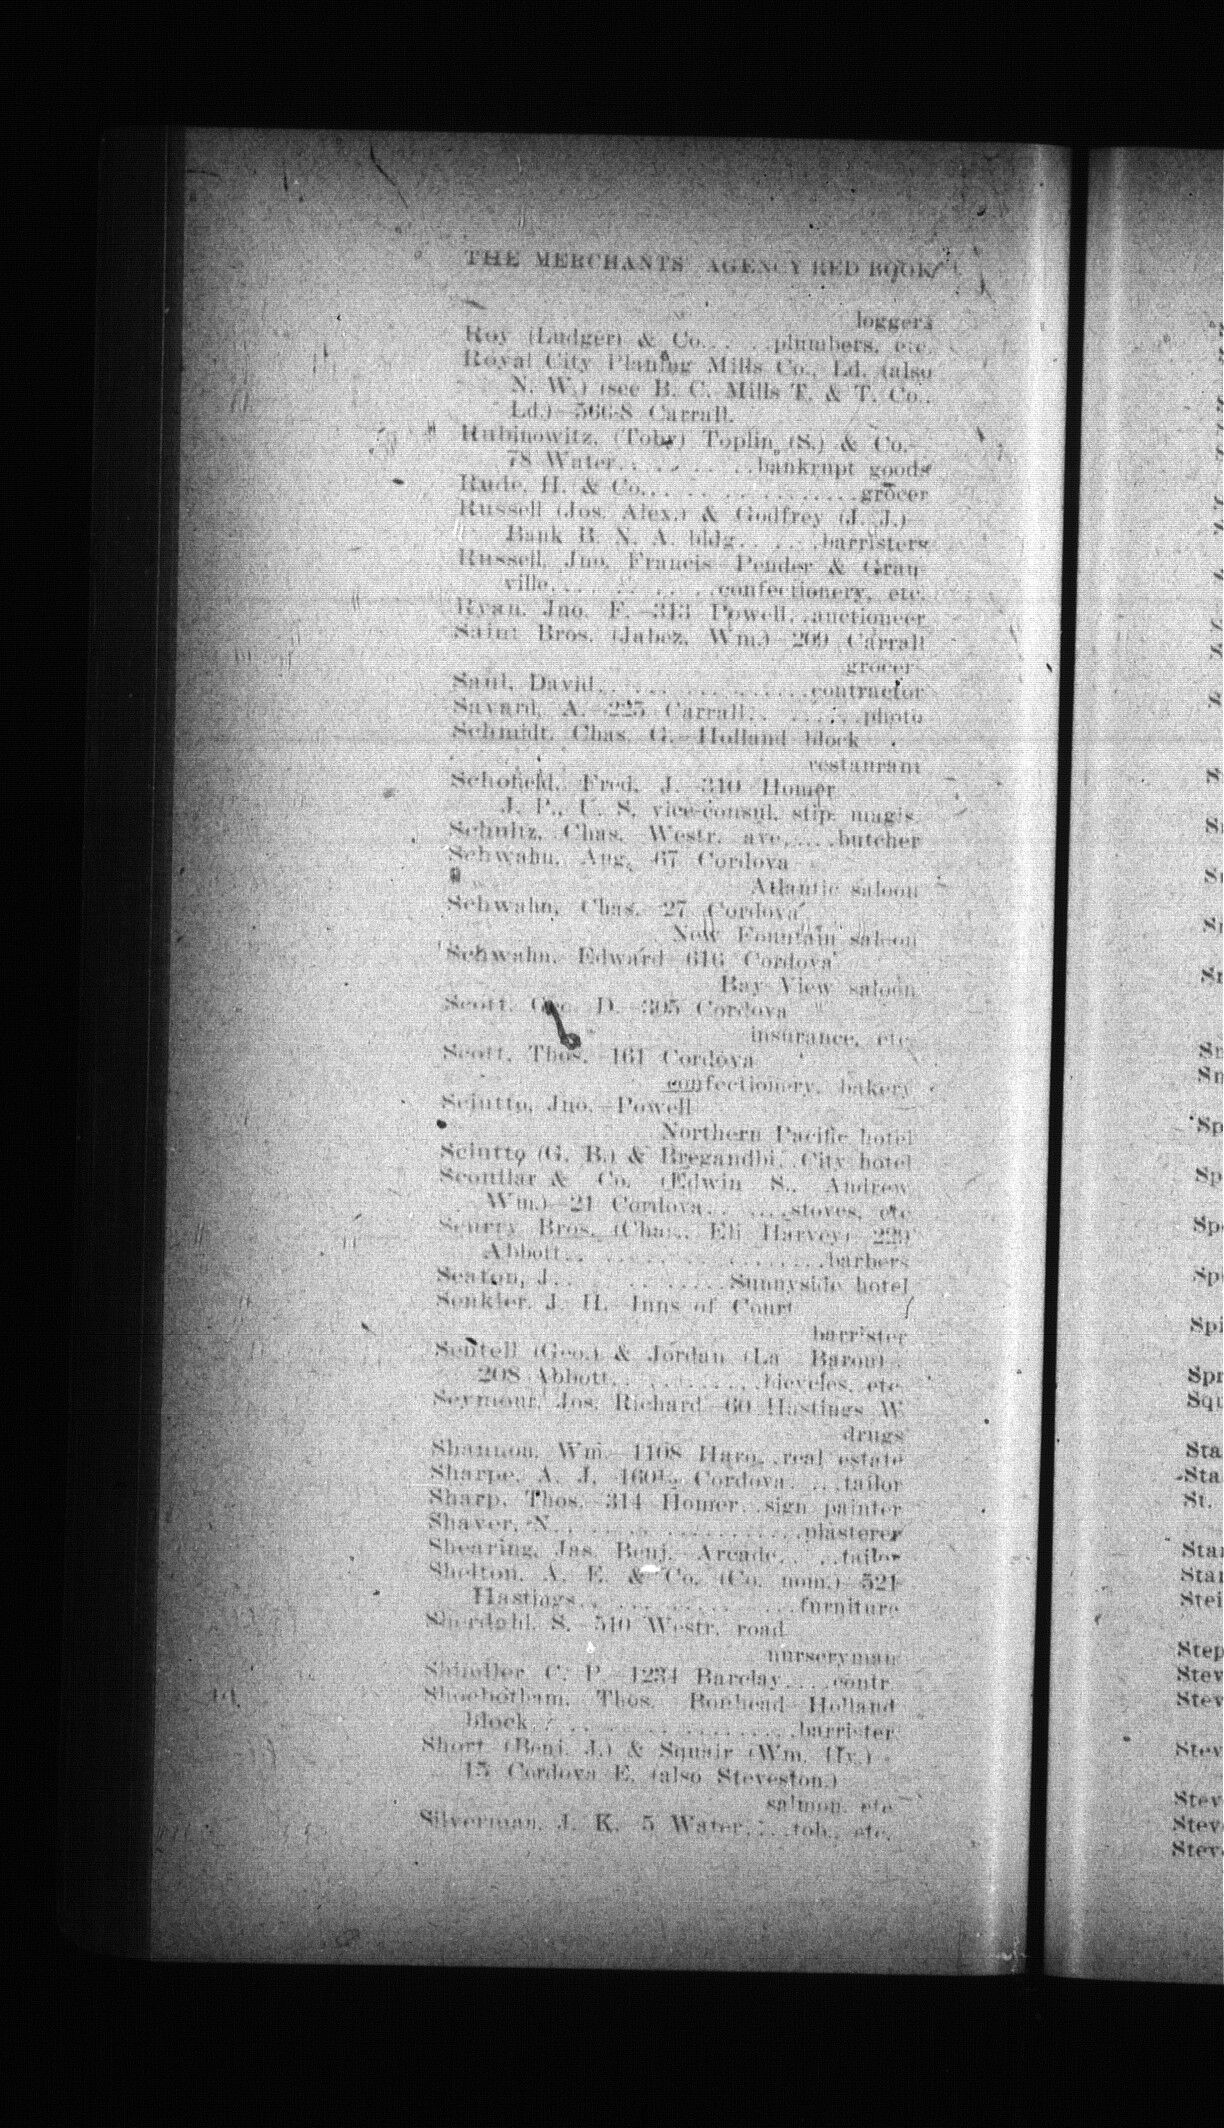 THE MERCHANTS' AGENCY RED BOOK
loggers
Roy (Ludger) & Co.. . . .plumbers, etc.
Royal City Planing Mills Co., Ld. (also
N. W.) (see B. C. Mills T. & T. Co.,
Ld.)—566-8 Carrall.
Rubinowitz, (Toby) Toplin (S.) & Co.—
78 Water. . . . . . . .bankrupt goods
Rude, H. & Co. . . . . . . . . . . . .grocer
Russell (Jos. Alex.) & Godfrey (J. J.)—
Bank B. N. A. bldg. . . . . .barristers
Russell, Jno. Francis—Pender & Gran-
ville. . . . . . . . . . .confectionery, etc.
Ryan, Jno. F.—313 Powell. .auctioneer
Saint Bros. (Jabez, Wm.)—209 Carrall
grocer
Saul, David. . . . . . . . . . . . .contractor
Savard, A.—225 Carrall. . . . . . .photo
Schmidt, Chas. G.—Holland block
restaurant
Schofield, Fred. J.—310 Homer
J. P., U. S. vice-consul, stip. magis.
Schultz, Chas. Westr. ave. . . . .butcher
Schwahn, Aug. 67 Cordova
Atlantic saloon
Schwahn, Chas.—27 Cordova
New Fountain saloon
Schwahn, Edward—616 Cordova
Bay View saloon
Scott, Geo. D.—305 Cordova
insurance, etc.
Scott, Thos.—161 Cordova
confectionery, bakery
Sciutto, Jno.—Powell
Northern Pacific hotel
Sciutto (G. B.) & Bregandhi. .City hotel
Scoullar & Co. (Edwin S., Andrew
Wm.)—21 Cordova. . . . . .stoves, etc
Scurry Bros. (Chas., Eli Harvey) 229
Abbott. . . . . . . . . . . . . . . . .barbers
Seaton, J. . . . . . . . . . .Sunnyside hotel
Senkler, J. H.—Inns of Court
barrister
Sentell (Geo.) & Jordan (La Baron)—
208 Abbott. . . . . . . . . .bicycles, etc
Seymour, Jos. Richard—60 Hastings W
drugs
Shannon, Wm.—1108 Haro. .real estate
Sharpe, A. J. 160½ Cordova. . . .tailor
Sharp, Thos.—314 Homer. .sign painter
Shaver, N. . . . . . . . . . . . . . .plasterer
Shearing, Jas. Benj.—Arcade. . . .tailor
Shelton, A. E. & Co. (Co. nom.)—521
Hastings. . . . . . . . . . . . . .furniture
Sherdahl, S.—510 Westr. road
nurseryman
Shindler, C. P.—1234 Barclay. . . .contr.
Shoebotham, Thos. Bonhead—Holland
block. . . . . . . . . . . . . . . .barrister
Short (Benj. J.) & Squair (Wm. Hy.)—
15 Cordova E. (also Steveston.)
salmon, etc
Silverman, J. K. 5 Water. . . .tob., etc.
Sp
Sp
Spi
Spr
Squ
Sta
Sta
St.
Stan
Star
Stei
Step
Stev
Stev
Stev
Stev
Steve
Steve